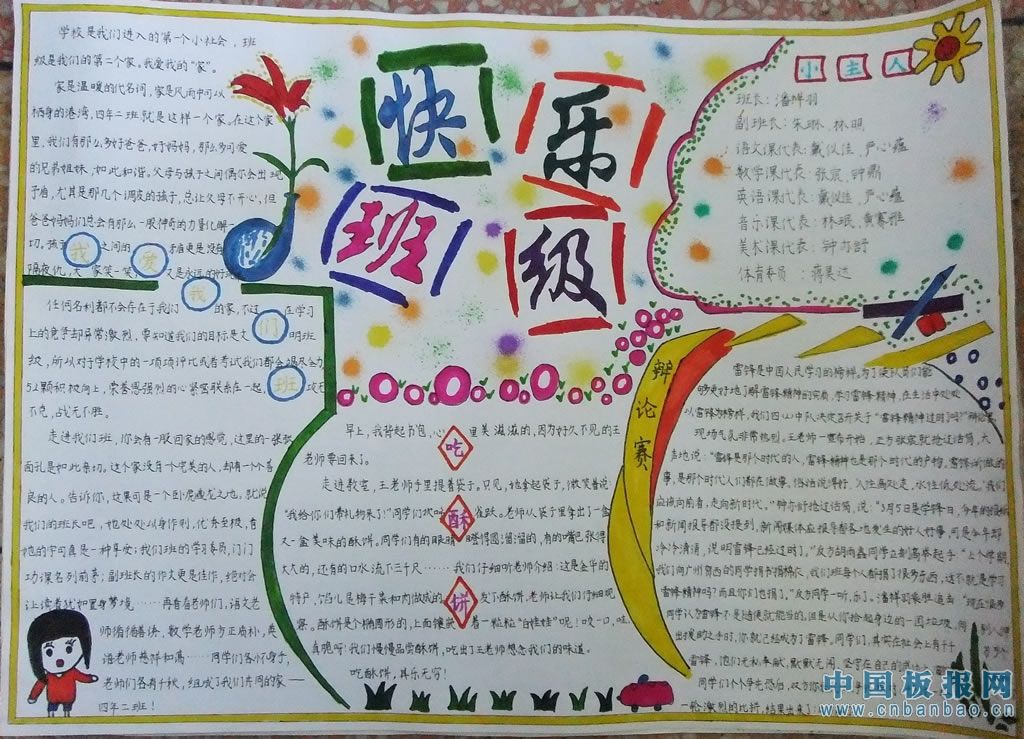 快乐
班级
学校是我们进入的第一个小社会，班
级是我们的第二个家。我爱我的“家”。
家是温暖的代名词，家是风雨中可以
栖身的港湾，四年二班就是这样一个家。在这个家
里，我们有那么多好爸爸，好妈妈，那么多可爱
的兄弟姐妹，如此和谐。父母与孩子之间偶尔会出现
矛盾，尤其是那几个调皮的孩子，总让父母不开心，但
爸爸妈妈们总会有那么一股神奇的力量化解一
切，孩子之间的矛盾更是没有
隔夜仇，大家笑一笑，又是永远的好
我爱我们班
任何名利都不会存在于我们的家，不过在学习
上的竞争却异常激烈，要知道我们的目标是文明班
级，所以对于学校中的一项项评比或者考试我们都会竭尽全力
52颗积极向上，荣誉感强烈的心紧密联系在一起，攻无
不克，战无不胜。
走进我们班，你会有一股回家的感觉，这里的一张张
面孔是如此亲切。这个家没有十全十美的人，却有一个个善
良的人。告诉你，这里可是一个卧虎藏龙之地。就说
我们的班长吧，她处处以身作则，优秀至极，看
她的字可真是一种享受；我们班的学习委员，门门
功课名列前茅；副班长的作文更是佳作，绝对会
让读者犹如置身梦境……再看看老师们，语文老
师循循善诱，数学老师方正肃朴，英
语老师慈祥和蔼……同学们各怀身手，
老师们各有千秋，组成了我们共同的家——
四年二班！
吃酥饼
早上，我背起书包，心里美滋滋的，因为好久不见的王
老师要回来了。
走进教室，王老师手里提着袋子。只见，她拿起袋子，微笑着说：
“我给你们带礼物来了！”同学们欢呼雀跃。老师从袋子里拿出了一盒
又一盒美味的酥饼。同学们有的眼睛瞪得圆溜溜的，有的嘴巴张得
大大的，还有的口水流下三千尺……我们仔细听老师介绍：这是金华的
特产，馅儿是梅干菜和肉做成的。发下酥饼，老师让我们仔细观
察。酥饼是个椭圆形的，上面镶嵌着一粒粒“白娃娃”呢！咬一口，哇，
真脆呀！我们慢慢品尝酥饼，吃出了王老师想念我们的味道。
吃酥饼，其乐无穷！
小主人
班长：潘祥羽
副班长：朱琳、林明
语文课代表：戴仪佳、严心蕴
数学课代表：张宸、钟鼎
英语课代表：戴仪佳、严心蕴
音乐课代表：林珉、黄赛雅
美术课代表：钟亦舒
体育委员：蒋昊达
辩论赛
雷锋是中国人民学习的榜样。为了使队员们能
够更好地了解雷锋精神的实质，学习雷锋精神，在生活中处处
以雷锋为榜样，我们四(2)中队决定召开关于“雷锋精神过时吗？”辩论赛。
现场气氛非常热烈。王老师一宣布开始，正方张宸就抢过话筒，大
声地说：“雷锋是那个时代的人，雷锋精神也是那个时代的产物，雷锋所做的
事，是那个时代人们都在做事。俗话说得好，人往高处走，水往低处流。”我们
应该向前看，走向新时代。”钟亦舒抢过话筒，说：“3月5日是学锋日，今年的
和新闻报导都没提到，新闻媒体应报导各地发生的好人好事，可是今年却
冷冷清清，说明雷锋已经过时了。”反方胡雨鑫同学立刻高举起手“上个学期，
我们向广州贫西的同学捐书捐棉衣，我们班每个人都捐了很多东西，这不就是学习
雷锋精神吗？而且你们也捐了。”反方同学一听，乐了。潘祥羽乘胜追击“现在
同学认为雷锋不是随便就能当的，但是从你捡起身边的一团垃圾，向别人伸
出援助之手时，你就已经成为了雷锋。同学们，其实在社会上有千千万万个
雷锋，他们无私奉献，默默无闻，坚守在自己的
同学们个个争先恐后，双方
一轮激烈的比拼，结果出来了：
中国板报网
www.cnbanbao.cn